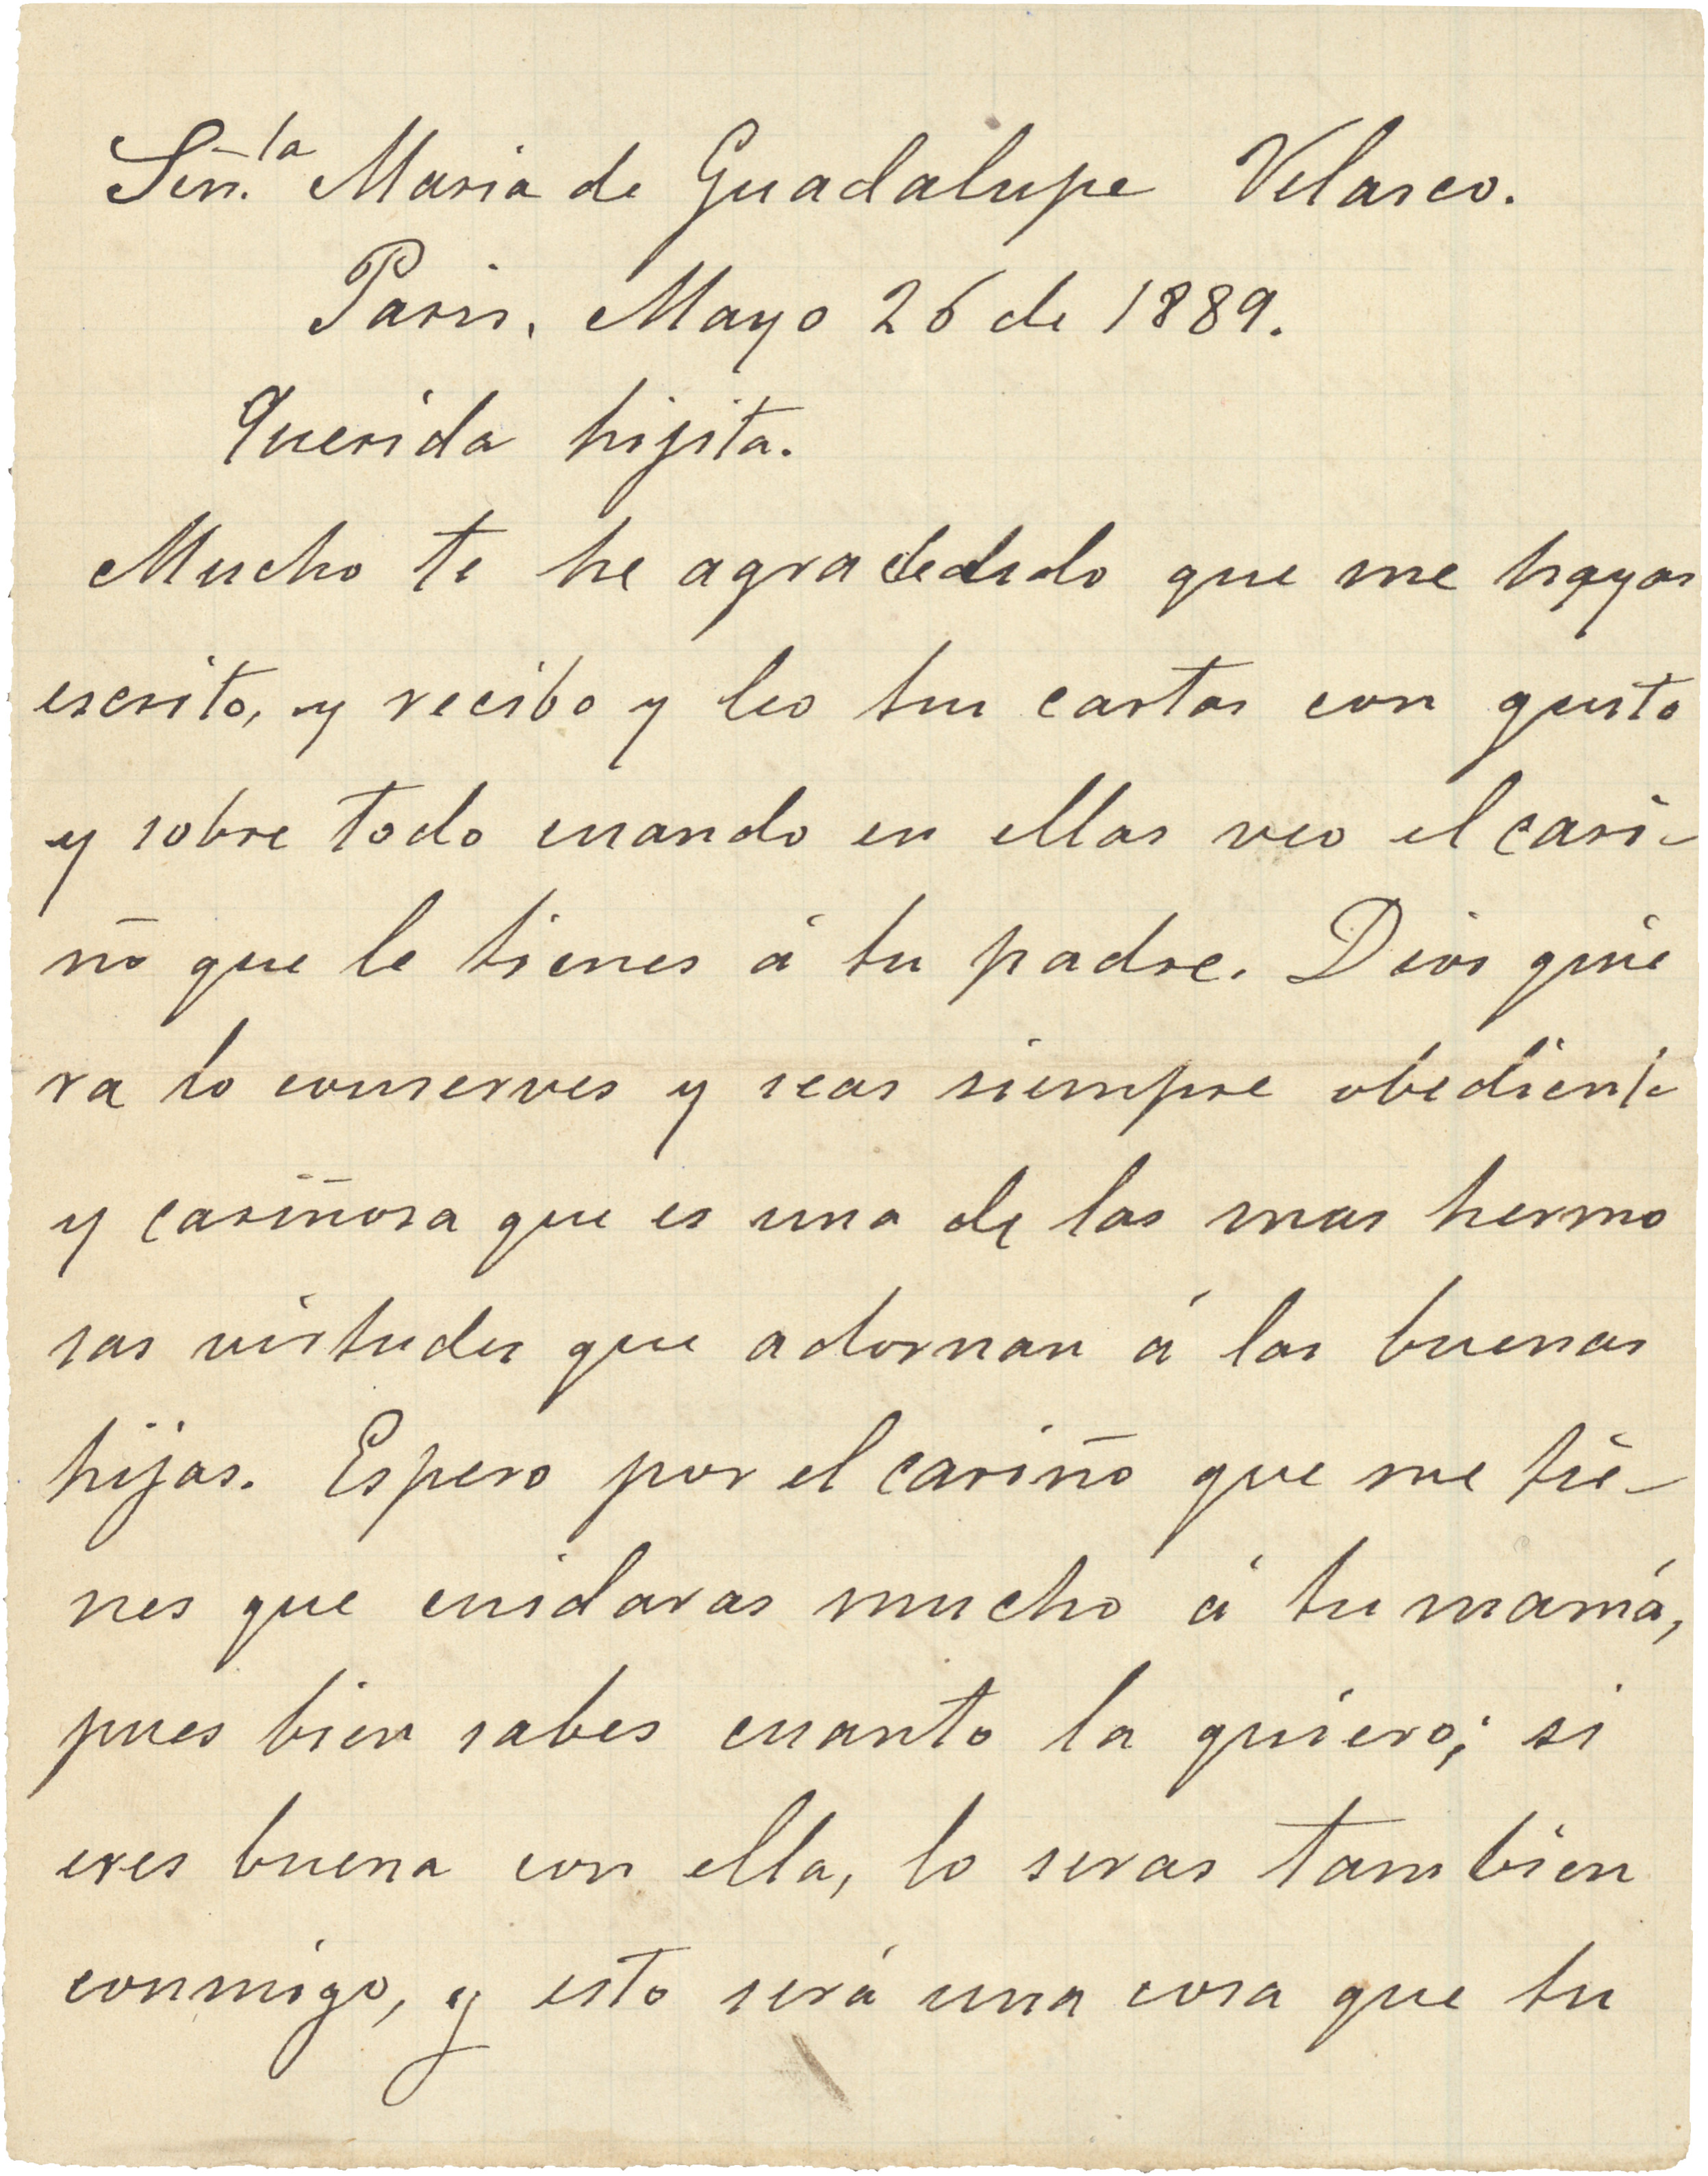 Señ.ta Maria de Guadalupe Velasco.
Paris, Mayo 26 de 1889.
Querida hijita.
Mucho te he agradedido que me hayas
escrito, y recibo y leo tus cartas con gusto
y sobre todo cuando en ellas veo el cari-
ño que le tienes á tu padre. Dios quie
ra lo conserves y seas siempre obediente
y cariñosa que es una de las mas hermo
sas virtudes que adornan á las buenas
hijas. Espero por el cariño que me tie-
nes que cuidaras mucho á tu mamá,
pues bien sabes cuanto la quiero; si
eres buena con ella, lo seras tambien
conmigo, y esto será una cosa que tu